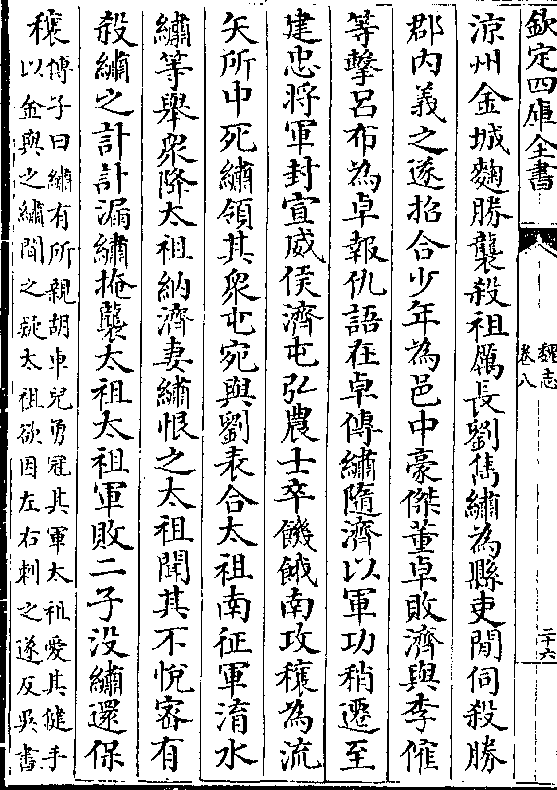 欽定四庫全書
魏志
卷八
二十六
涼州金城麴勝襲殺祖厲長劉雋繡為縣吏閒伺殺勝
郡内義之遂招合少年為邑中豪傑董卓敗濟與李傕
等擊吕布為卓報仇語在卓傳繡隨濟以軍功稍遷至
建忠將軍封宣威侯濟屯弘農士卒饑餓南攻穰為流
矢所中死繡領其衆屯宛與劉表合太祖南征軍淯水
繡等舉衆降太祖納濟妻繡恨之太祖聞其不悅密有
殺繡之計計漏繡掩襲太祖太祖軍敗二子没繡還保
穰
傳子曰繡有所親胡車兒勇冠其軍太祖愛其健手
以金與之繡聞之疑太祖欲因左右刺之遂反吳書